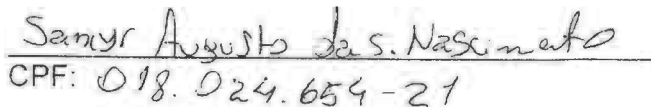 Samyr Augusto da S. Nascimento
CPF: 018.024.654-21